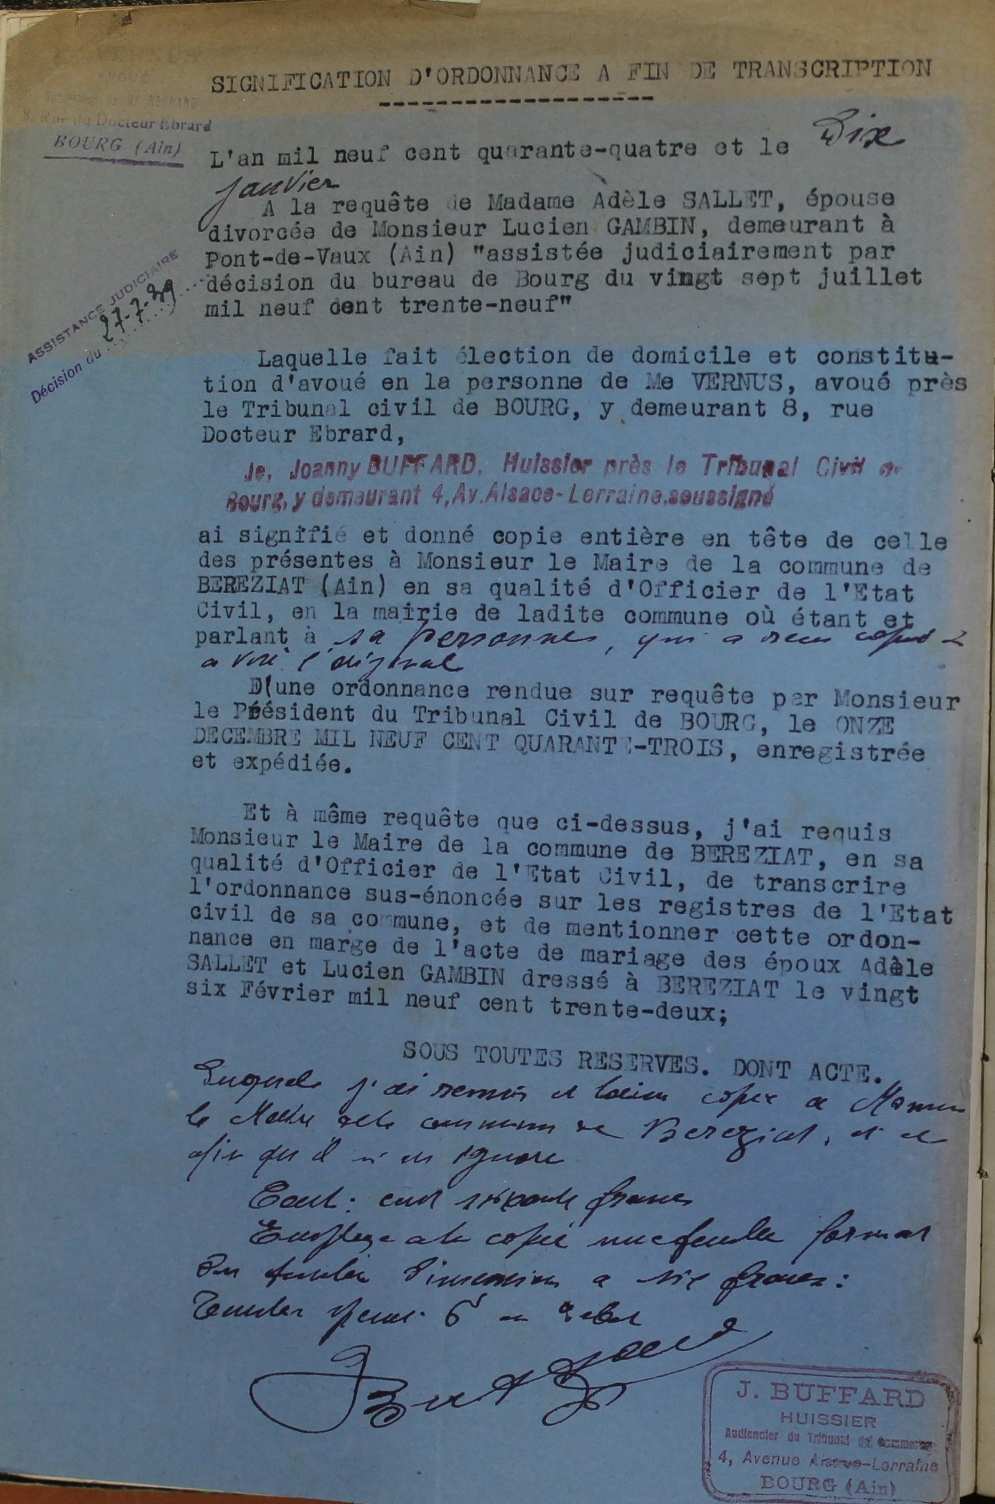 VERNUS
AVOUÉ
8, Rue du Docteur Ebrard
BOURG (Ain)
SIGNIFICATION D'ORDONNANCE A FIN DE TRANSCRIPTION
L'an mil neuf cent quarante-quatre et le Dix
janvier
A la requête de Madame Adèle SALLET, épouse
divorcée de Monsieur Lucien GAMBIN, demeurant à
Pont-de-Vaux (Ain) "assistée judiciairement par
décision du bureau de Bourg du vingt sept juillet
mil neuf cent trente-neuf"
ASSISTANCE JUDICIAIRE
Décision du 27-7-39
Laquelle fait élection de domicile et constitu-
tion d'avoué en la personne de Me VERNUS, avoué près
le Tribunal civil de BOURG, y demeurant 8, rue
Docteur Ebrard,
Je, Joanny BUFFARD, Huissier près le Tribunal Civil de
Bourg, y demeurant 4, Av. Alsace-Lorraine, soussigné
ai signifié et donné copie entière en tête de celle
des présentes à Monsieur le Maire de la commune de
BEREZIAT (Ain) en sa qualité d'Officier de l'Etat
Civil, en la mairie de ladite commune où étant et
parlant à sa personne, qui a reçu copie et
a visé l'original
D'une ordonnance rendue sur requête par Monsieur
le Président du Tribunal Civil de BOURG, le ONZE
DECEMBRE MIL NEUF CENT QUARANTE-TROIS, enregistrée
et expédiée.
Et à même requête que ci-dessus, j'ai requis
Monsieur le Maire de la commune de BEREZIAT, en sa
qualité d'Officier de l'Etat Civil, de transcrire
l'ordonnance sus-énoncée sur les registres de l'Etat
civil de sa commune, et de mentionner cette ordon-
nance en marge de l'acte de mariage des époux Adèle
SALLET et Lucien GAMBIN dressé à BEREZIAT le vingt
six Février mil neuf cent trente-deux;
SOUS TOUTES RESERVES. DONT ACTE.
j'ai remis et laissé copie à Monsieur
le Maire de la commune de Bereziat, et ce
afin qu'il n'en ignore
Cout: cent soixante francs
Employé à la copie une feuille format
du timbre dimension à six francs:
J. BUFFARD
HUISSIER
Audiencier du Tribunal de Commerce
4, Avenue Alsace-Lorraine
BOURG (Ain)